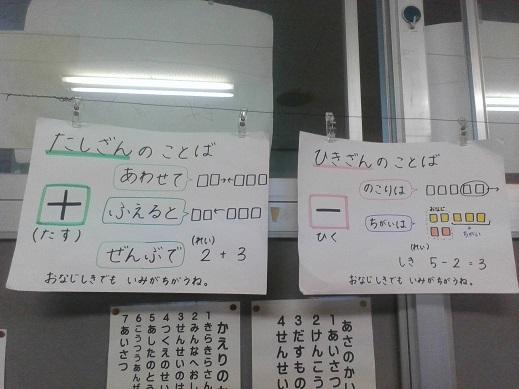 たしざんのことば
あわせて
ふえると
ぜんぶで
+
(たす)
(れい)
2 + 3
おなじしきでも いみがちがうね。
ひきざんのことば
のこりは
ちがいは
おなじ
ちがい
−
ひく
(れい)
しき 5 - 2 = 3
おなじしきでも いみがちがうね。
かえりの
1きらきらさん
2みんなへおし
3せんせいの
4つくえのせい
5あしたのとう
6こうつうあんぜ
7あいさつ
あさのかい
1あいさつ
2けんこう
3だすもの
4せんせい